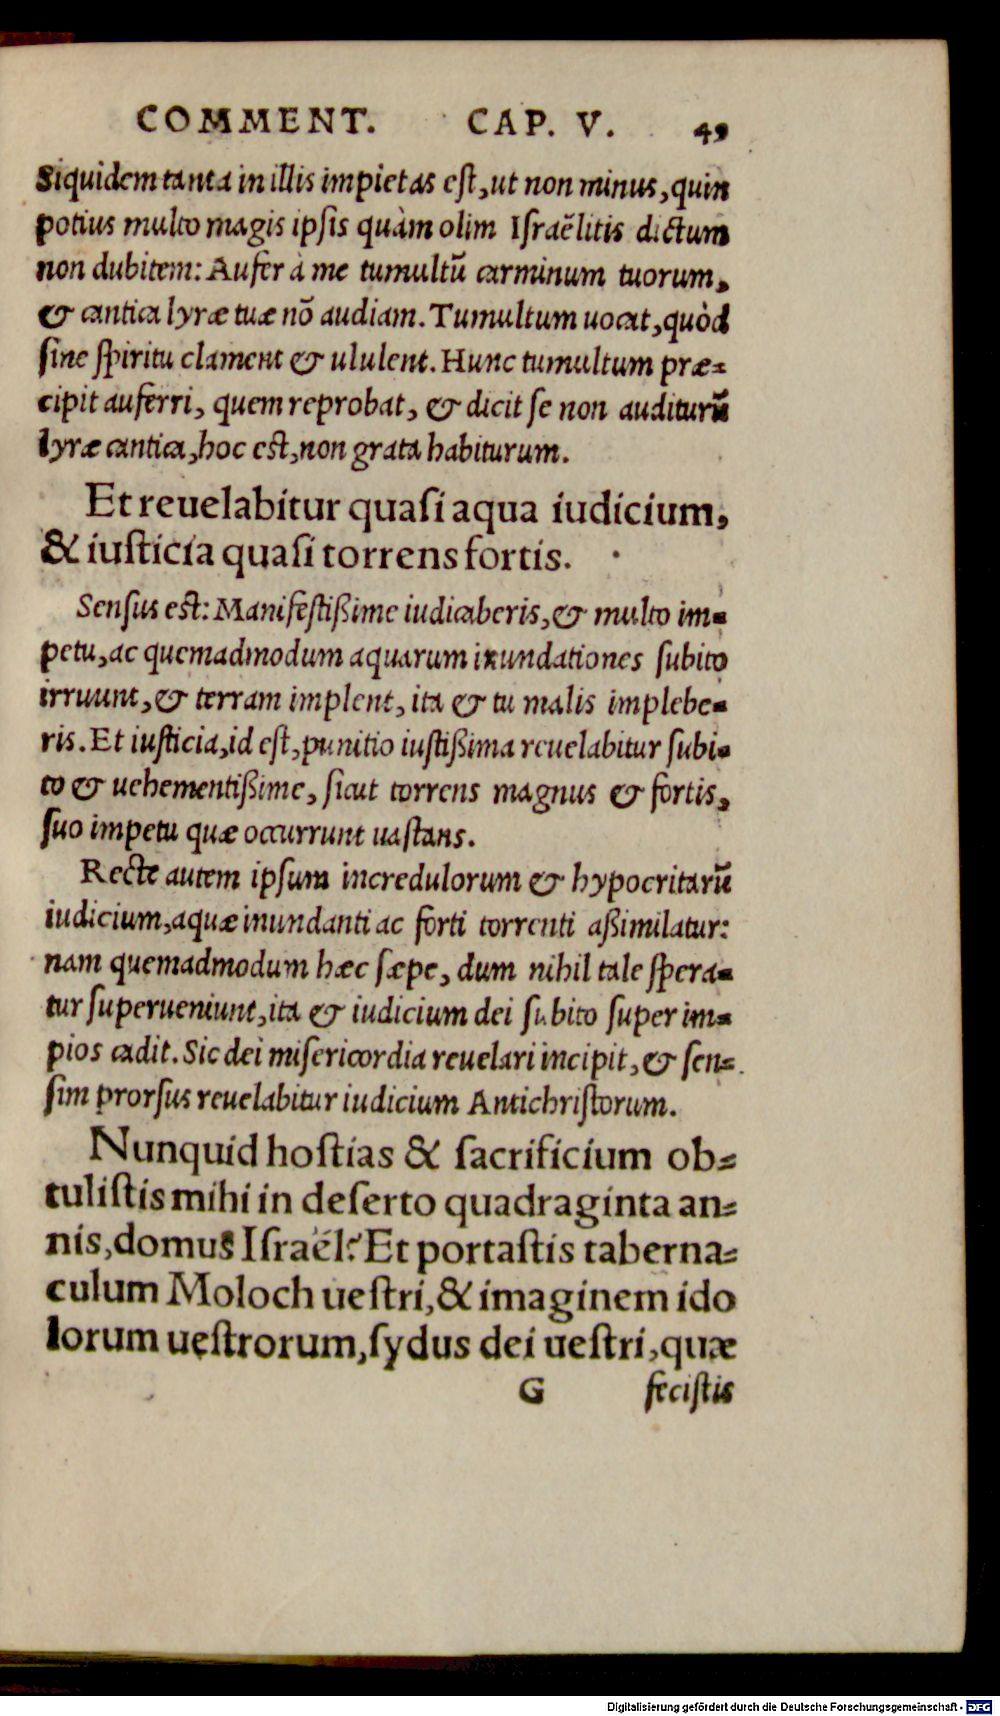 COMMENT. CAP. V. 49
Siquidem tanta in illis impietas eſt, ut non minus, quin
potius multo magis ipſis quàm olim Iſraëlitis dictum
non dubitem: Aufer à me tumultū carminum tuorum,
& cantica lyræ tuæ nō audiam. Tumultum uocat, quòd
ſine ſpiritu clament & ululent. Hunc tumultum præ=
cipit auferri, quem reprobat, & dicit ſe non auditurū
lyræ cantica, hoc eſt, non grata habiturum.
Et reuelabitur quaſi aqua iudicium,
& iuſticia quaſi torrens fortis.
Senſus eſt: Manifeſtißime iudicaberis, & multo im=
petu, ac quemadmodum aquarum inundationes ſubito
irruunt, & terram implent, ita & tu malis implebe=
ris. Et iuſticia, id eſt, punitio iuſtißima reuelabitur ſubi=
to & uehementißime, ſicut torrens magnus & fortis,
ſuo impetu quæ occurrunt uaſtans.
Recte autem ipſum incredulorum & hypocritarū
iudicium, aquæ inundanti ac forti torrenti aßimilatur:
nam quemadmodum hæc ſæpe, dum nihil tale ſpera=
tur ſuperueniunt, ita & iudicium dei ſubito ſuper im=
pios cadit. Sic dei miſericordia reuelari incipit, & ſen=
ſim prorſus reuelabitur iudicium Antichriſtorum.
Nunquid hoſtias & ſacrificium ob=
tuliſtis mihi in deſerto quadraginta an=
nis, domus Iſraël? Et portaſtis taberna=
culum Moloch ueſtri, & imaginem ido
lorum ueſtrorum, ſydus dei ueſtri, quæ
G feciſtis
Digitalisierung gefördert durch die Deutsche Forschungsgemeinschaft - DFG